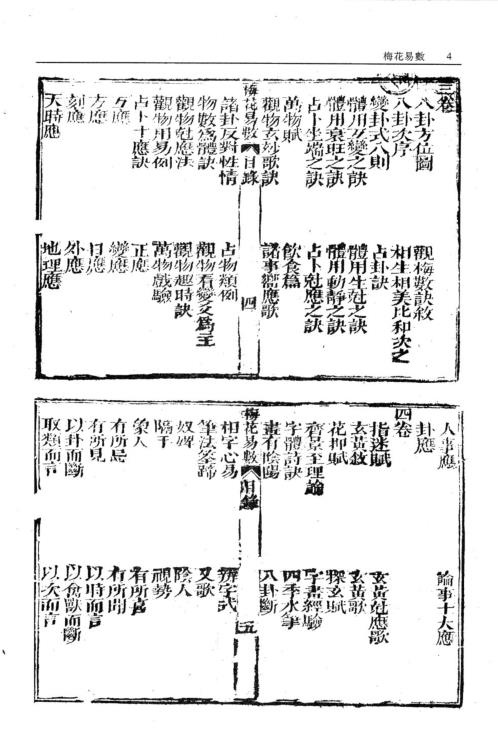 梅花易數 4
三卷
八卦方位圖 觀梅數訣敘
八卦次序 相生相美比和次之
變卦式八則 占卦訣
體用互變之訣 體用生尅之訣
體用衰旺之訣 體用動靜之訣
占卜坐端之訣 占卜尅應之訣
萬物賦 飲食篇
觀物玄妙歌訣 諸事響應歌
梅花易數 目錄 四
諸卦反對性情 占物類例
物數為體訣 觀物看變爻為主
觀物尅應法 觀物趣時訣
觀物用易例 萬物戲驗
占卜十應訣 正應
互應 變應
方應 日應
刻應 外應
天時應 地理應
人事應 論事十大應
卦應
四卷
指迷賦 玄黃尅應歌
玄黃敘 玄黃歌
花押賦 探玄賦
齊景至理論 字書經驗
字體詩訣 四季水筆
畫有陰陽 八卦斷
梅花易數 目錄 五
相字心易 辨字式
筆法筌蹄 又歌
奴婢 陰人
隔手 視勢
象人 有所喜
有所局 有所聞
有所見 以時而言
以卦而斷 以禽獸而斷
取類而言 以次而言